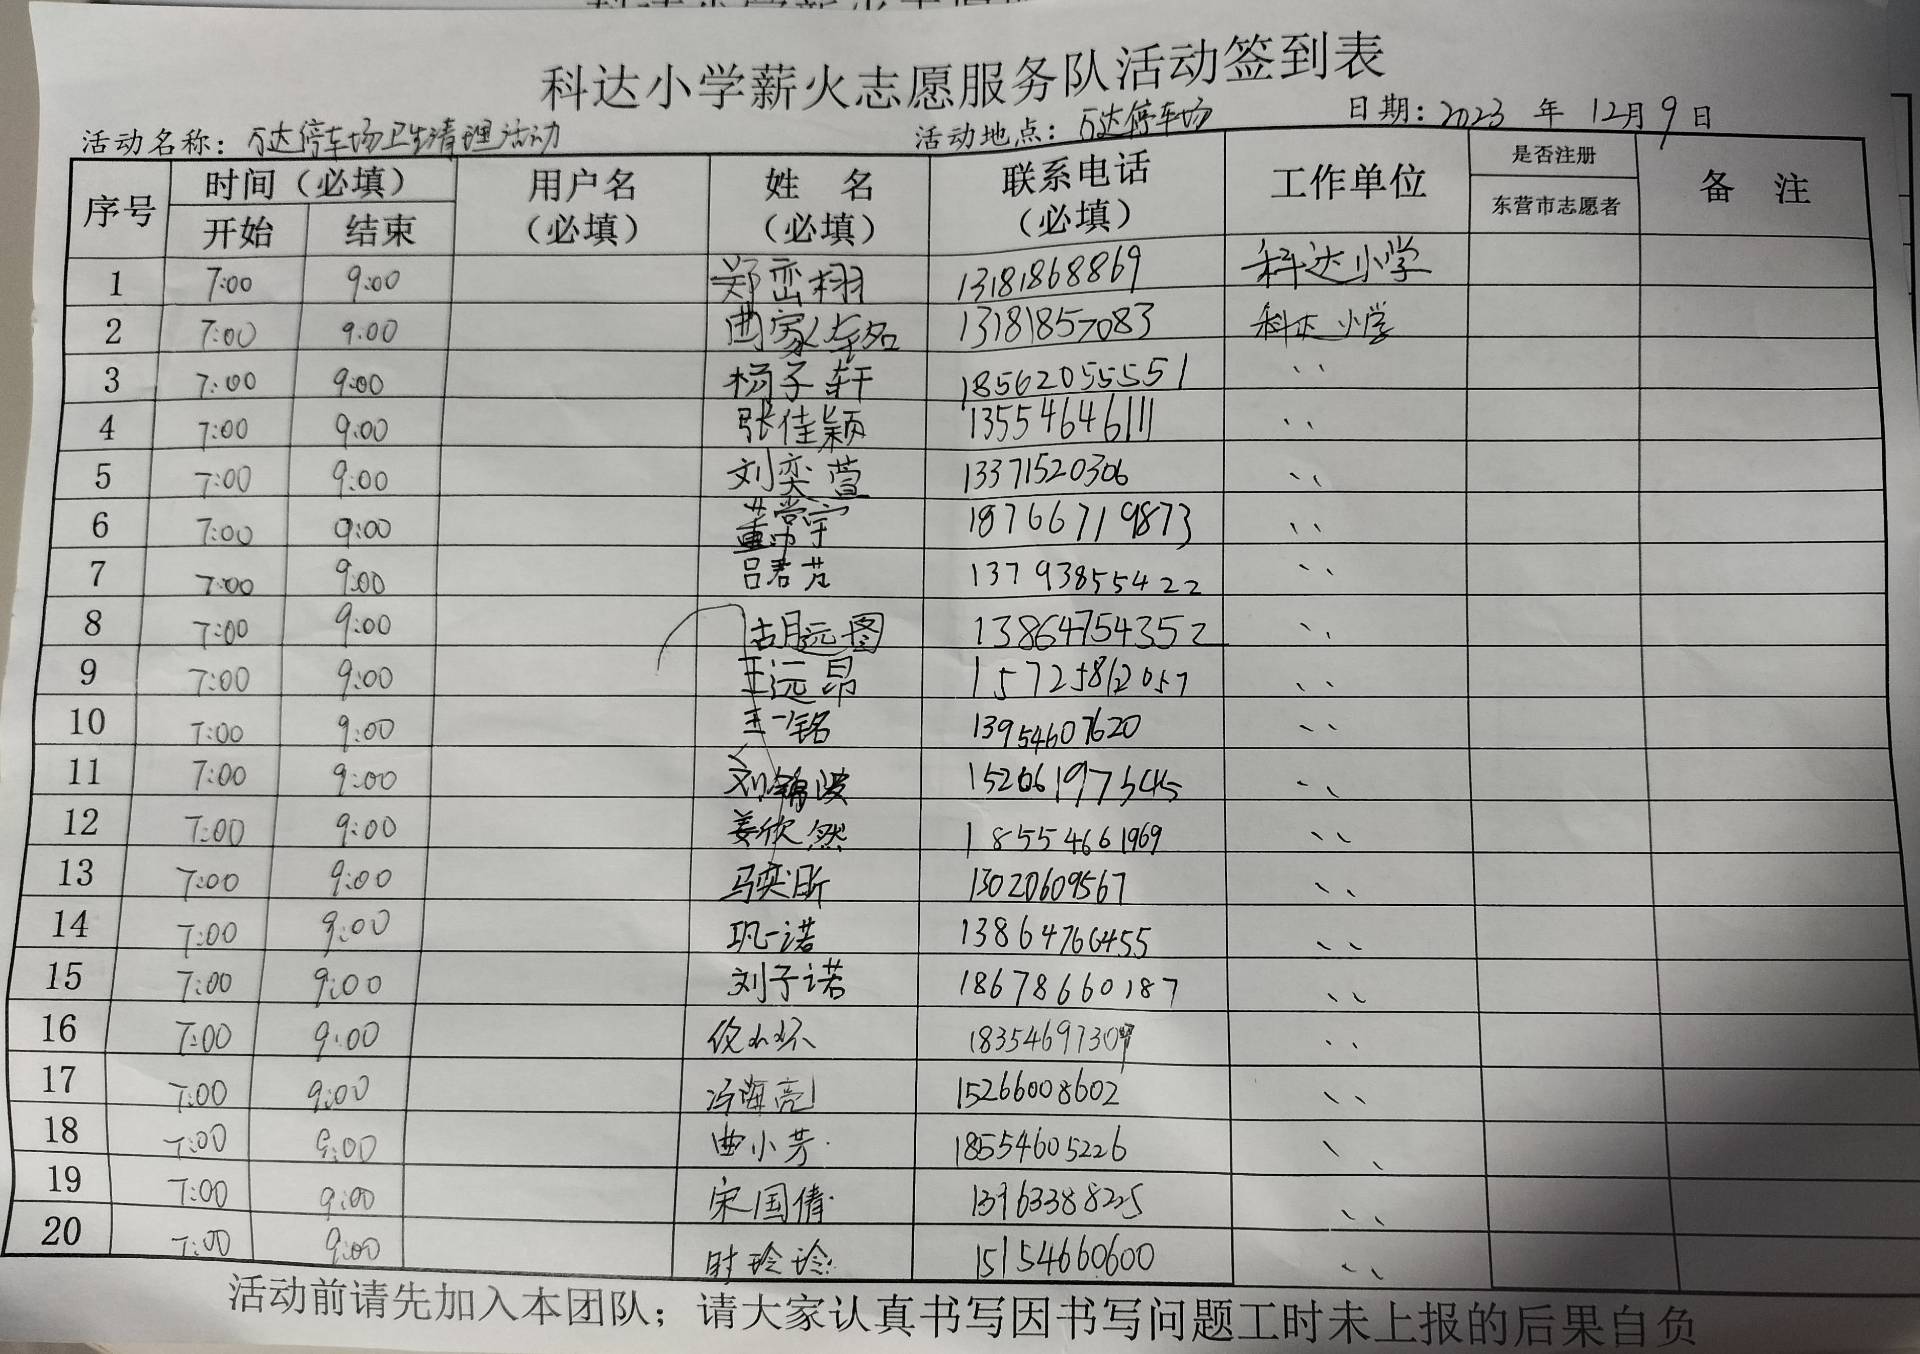 科达小学薪火志愿服务队活动签到表
活动名称：万达停车场卫生清理活动 活动地点：万达停车场 日期：2023 年 12月 9 日
序号 时间（必填） 用户名（必填） 姓 名（必填） 联系电话（必填） 工作单位 是否注册 备 注
开始 结束 东营市志愿者
1 7:00 9:00 郑峦栩 13181868869 科达小学
2 7:00 9:00 曲家 13181857083 科达小学
3 7:00 9:00 杨子轩 18562055551 、、
4 7:00 9:00 张佳颖 13554646111 、、
5 7:00 9:00 刘奕萱 13371520306 、、
6 7:00 9:00 董常宇 18766719873 、、
7 7:00 9:00 吕君 13793855422 、、
8 7:00 9:00 胡远图 13864754352 、、
9 7:00 9:00 王远昂 15725812057 、、
10 7:00 9:00 王一铭 13954607620 、、
11 7:00 9:00 刘锦 、、
12 7:00 9:00 姜欣然 18554661969 、、
13 7:00 9:00 马奕昕 13020609567 、、
14 7:00 9:00 巩一诺 13864766455 、、
15 7:00 9:00 刘子诺 18678660187 、、
16 7:00 9:00 、、
17 7:00 9:00 冯海亮 15266008602 、、
18 7:00 9:00 曲小芳 18554605226 、、
19 7:00 9:00 宋国倩 、、
20 7:00 9:00 时玲玲 15154660600 、、
活动前请先加入本团队；请大家认真书写因书写问题工时未上报的后果自负